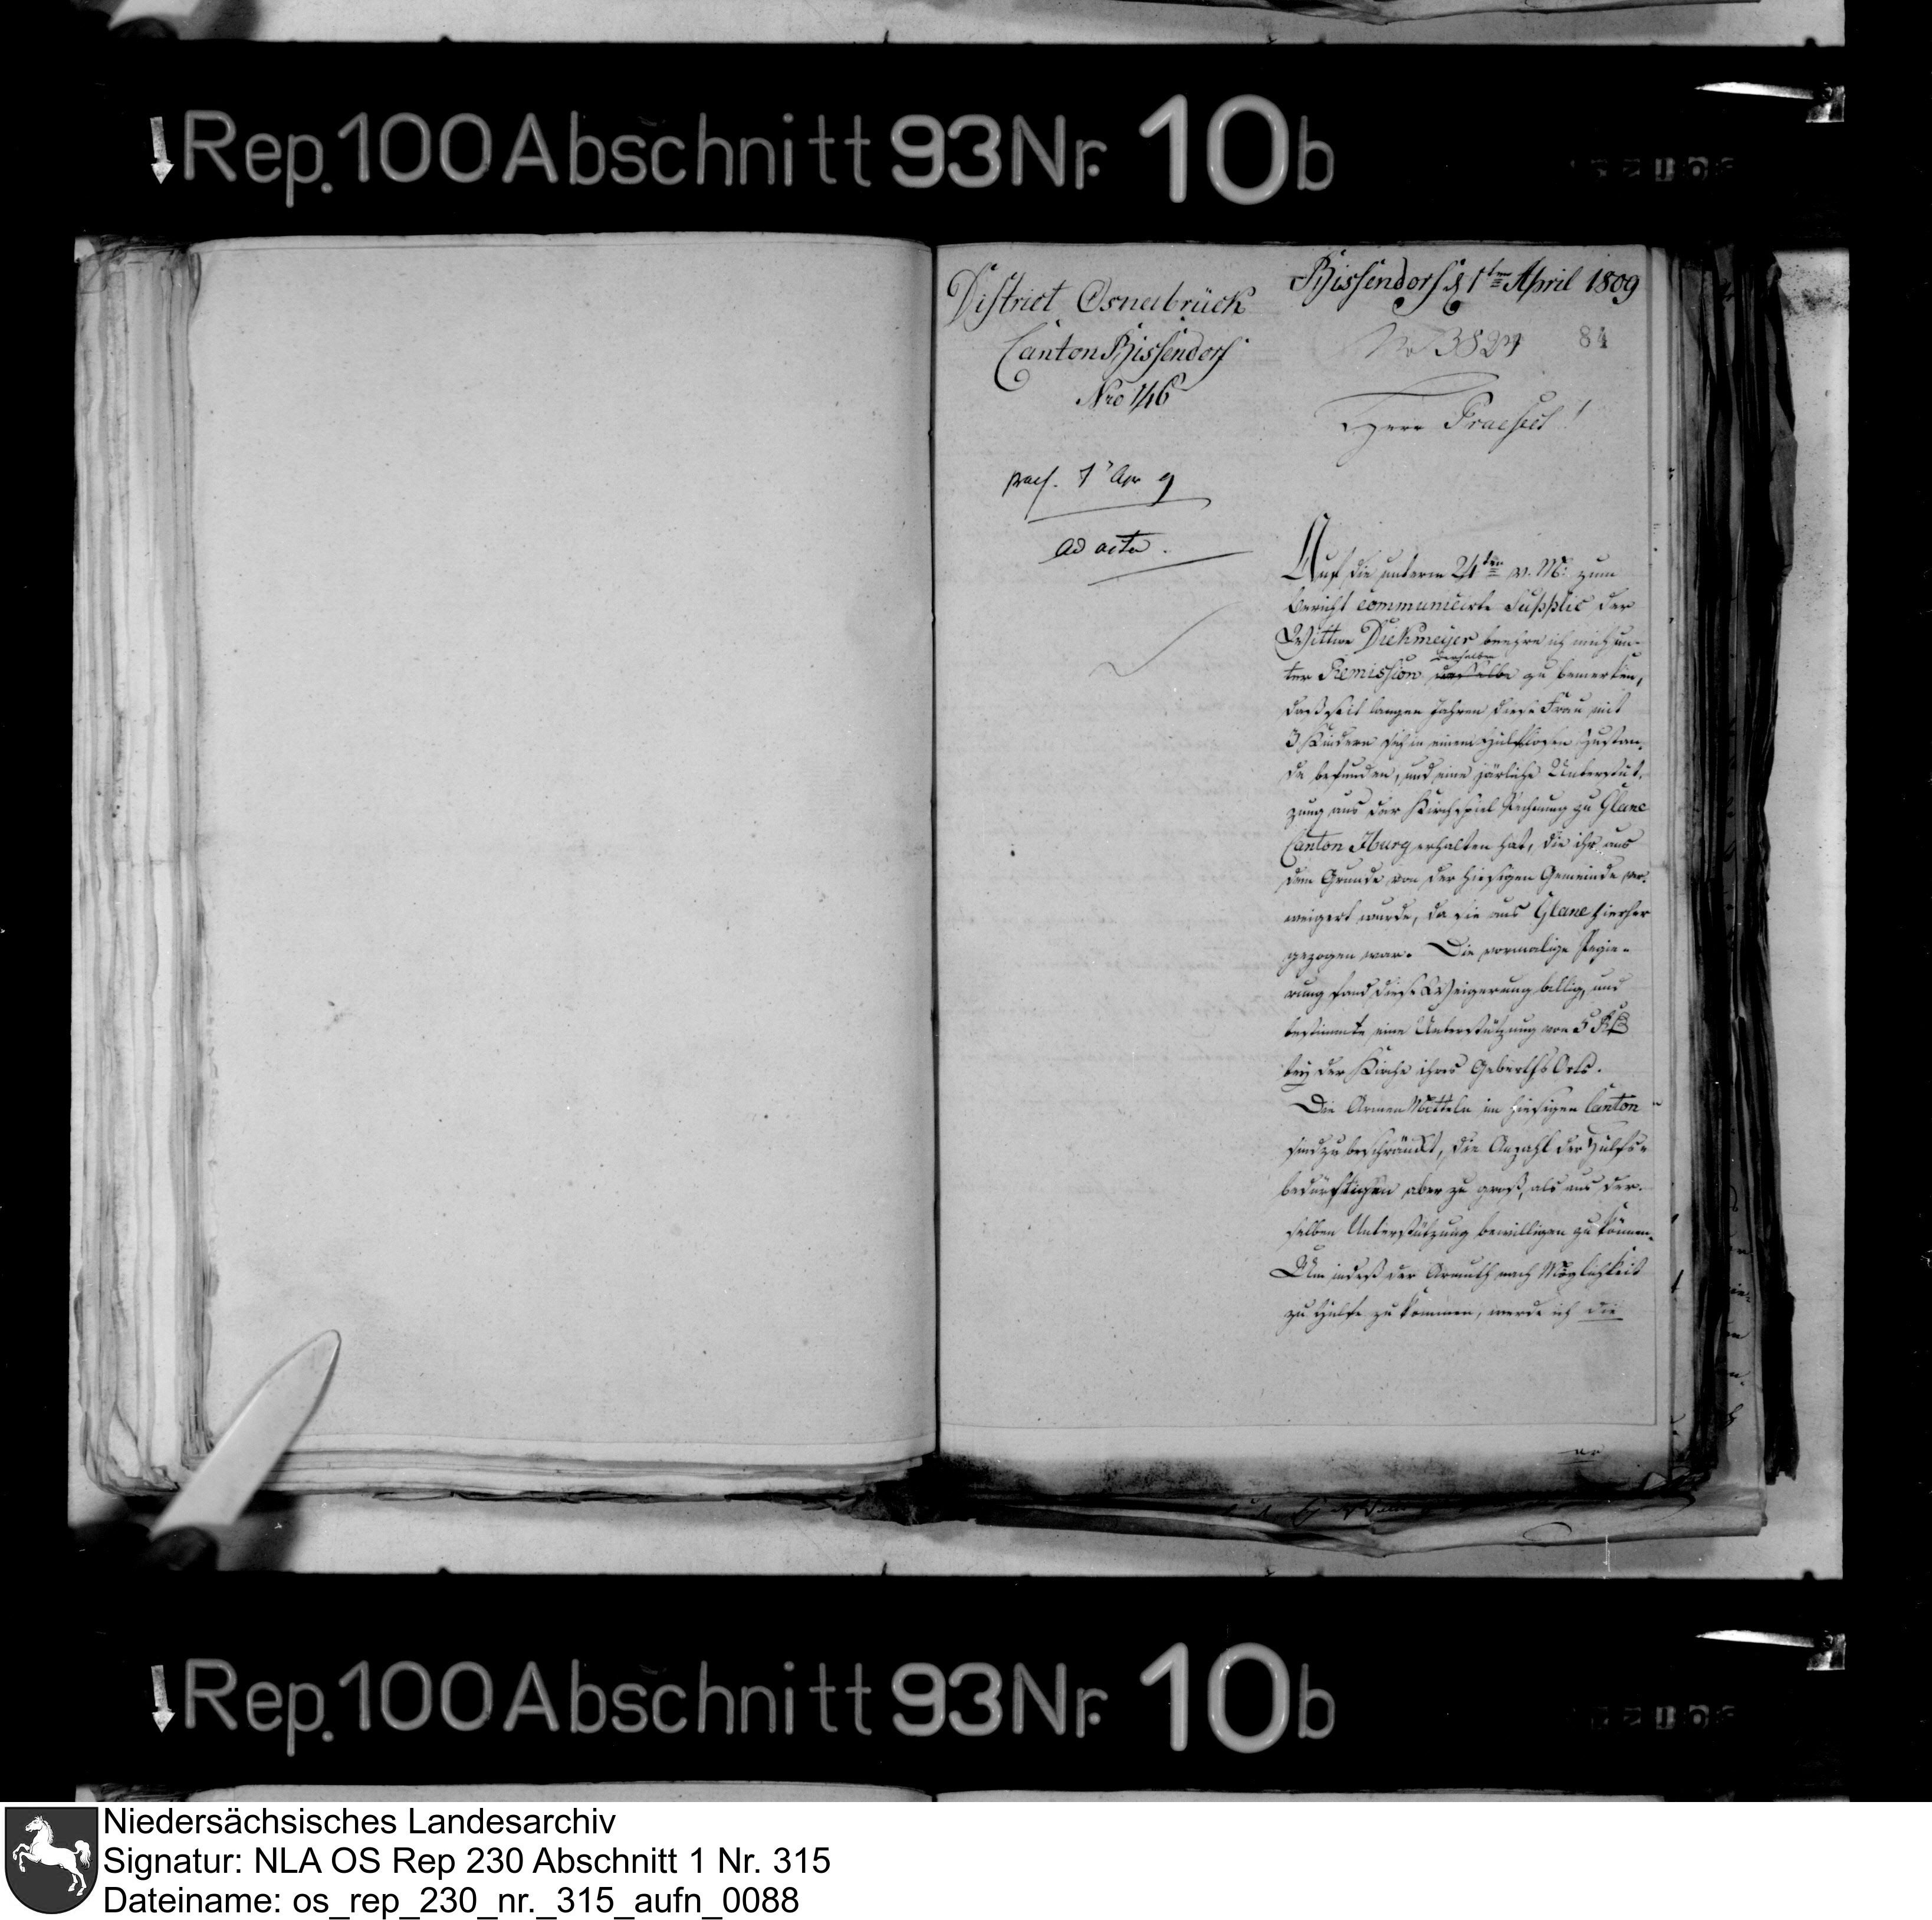 Rep. 100 Abschnitt 93 Nr. 10b
District Osnabrück
Canton Bissendorf
Nro 146
praes. 7 Apr 9
ad acta.
Bissendorf d 1ten April 1809
No 3824
84
Herr Praefect!
Auf die unterm 24ten v. M. zum
Bericht communicirte Supplic der
Wittwe Diekmeyer beehre ich mich un-
ter Remission derselben zu bemerken,
daß seit langen Jahren diese Frau mit
3 Kindern sich in einem hülflosen Zustan-
de befunden, und eine järliche Unterstüt-
zung aus der Kirchspiel Rechnung zu Glane
Canton Iburg erhalten hat, die ihr aus
dem Grunde von der hiesigen Gemeinde ver-
weigert wurde, da sie aus Glane hierher
gezogen war. Die vormalige Regie-
rung fand diese Weigerung billig, und
bestimmte eine Unterstützung von 5
bey der Kirche ihres Geburths Orts.
Die Armen Mitteln im hiesigen Canton
sind zu beschränkt, die Anzahl der Hülfs-
bedürftigen aber zu groß, als aus der-
selben Unterstützung bewilligen zu können.
Um indeß der Armuth nach Möglichkeit
zu Hülfe zu kommen, werde ich die
Rep. 100 Abschnitt 93 Nr. 10b
Niedersächsisches Landesarchiv
Signatur: NLA OS Rep 230 Abschnitt 1 Nr. 315
Dateiname: os_rep_230_nr._315_aufn_0088